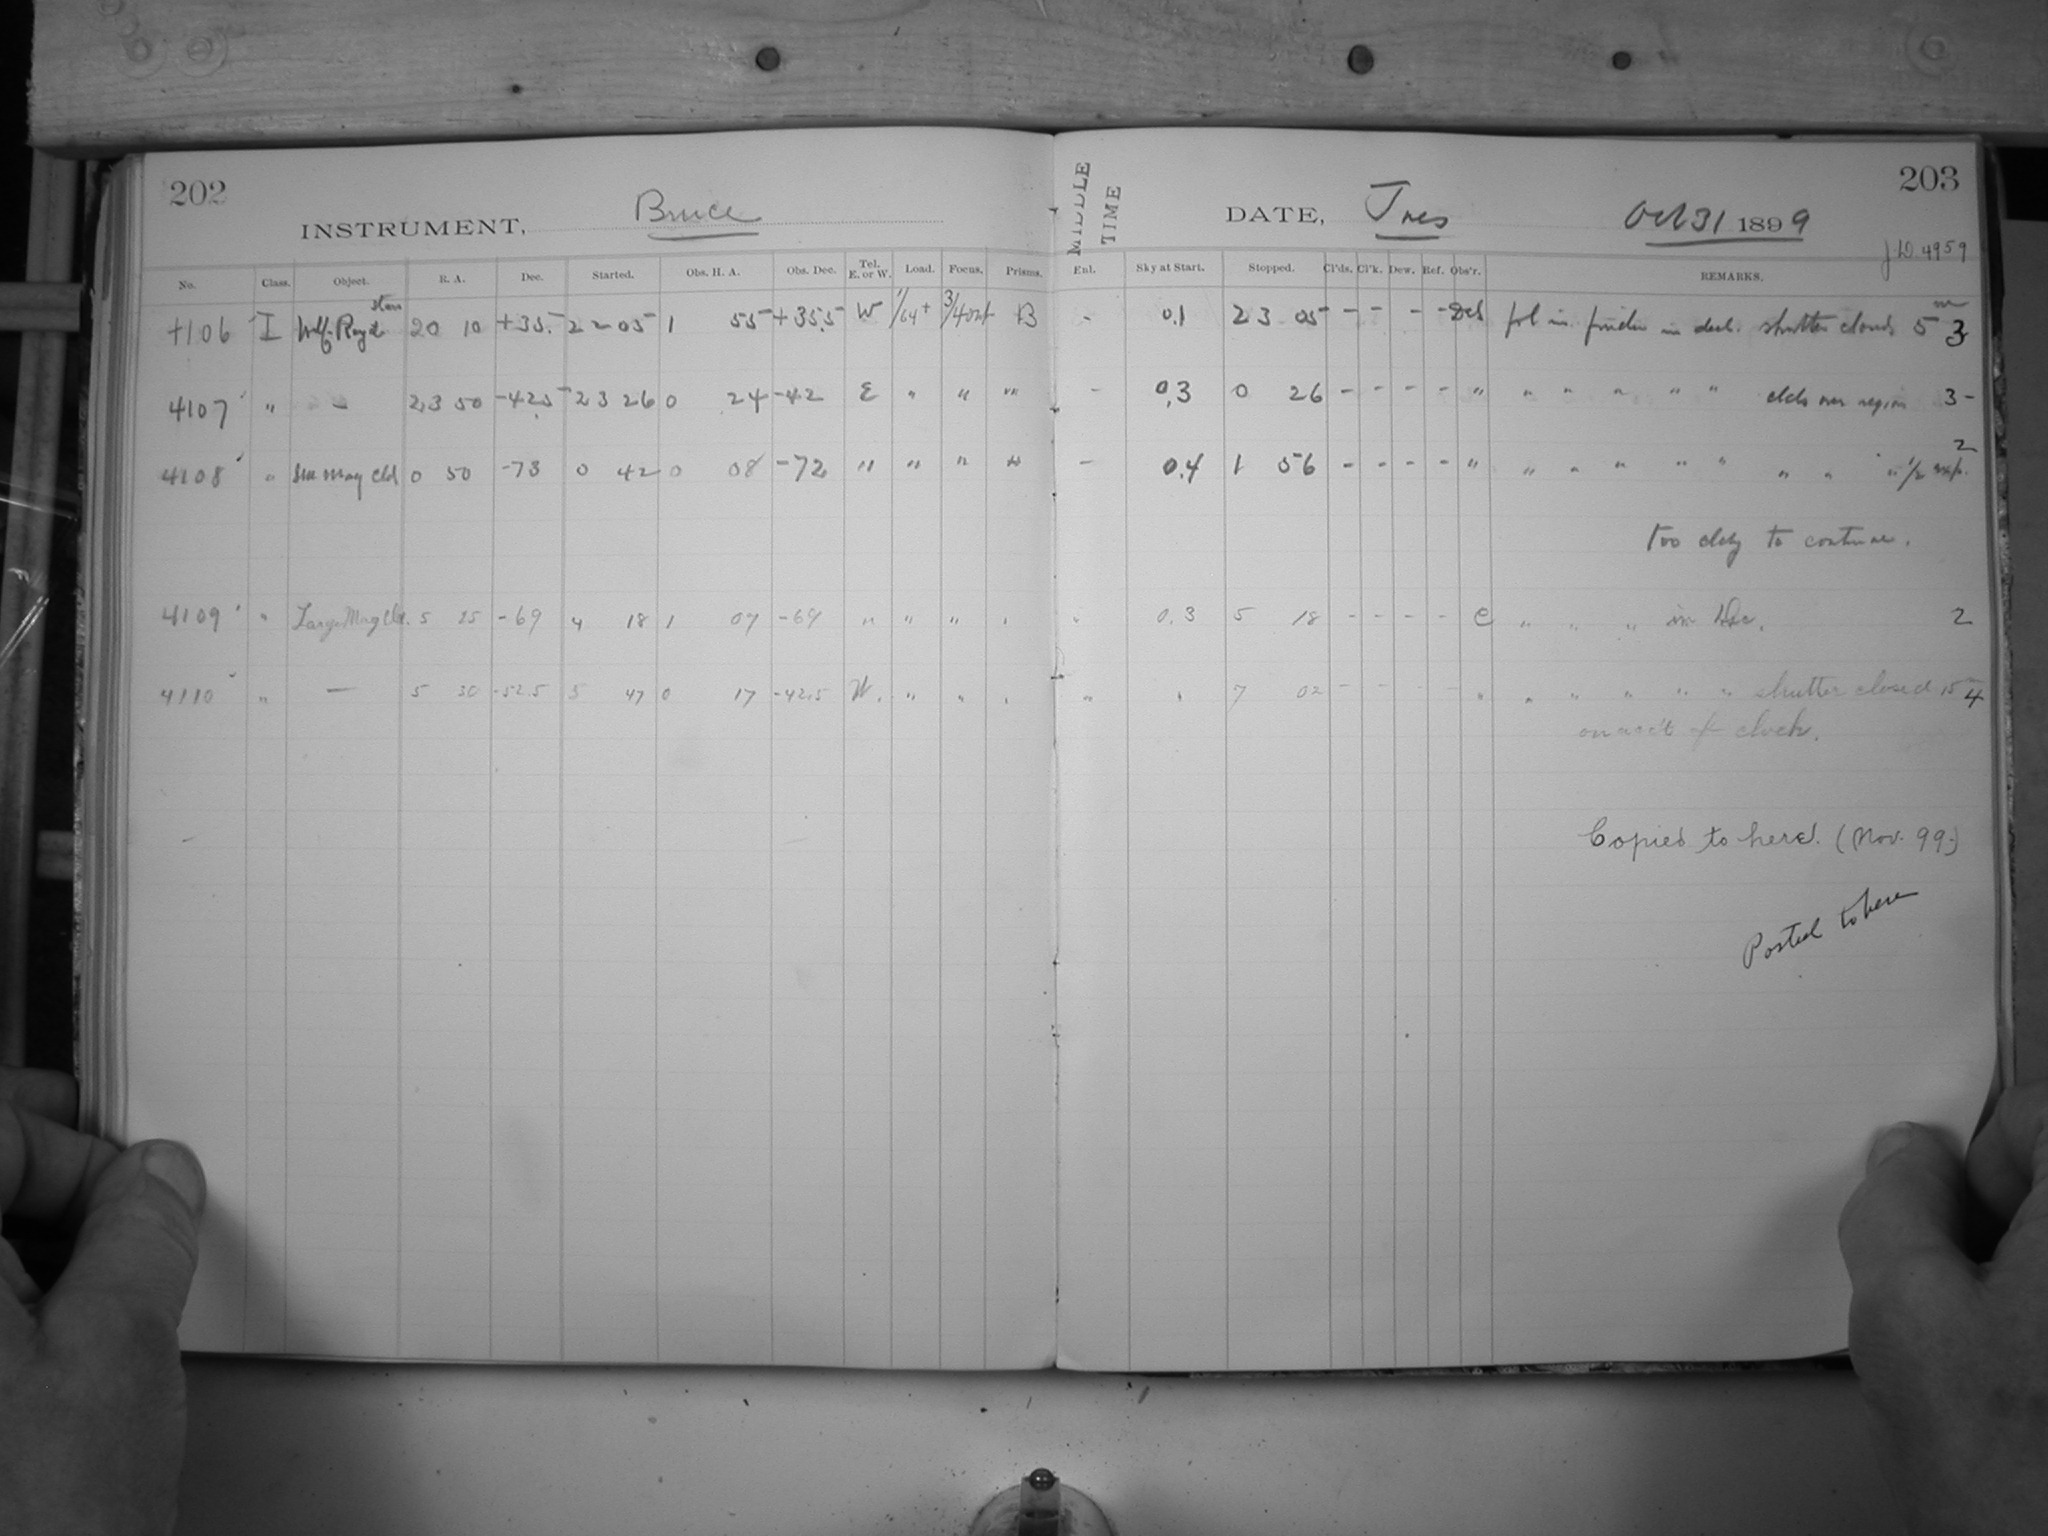 202
INSTRUMENT, Bruce
MIDDLE TIME
DATE, Tues Oct 31 1899
203
J.D. 4959
No. Class. Object. R. A. Dec. Started. Obs. H. A. Obs. Dec. Tel. E. or W. Load. Focus. Prisms. Enl. Sky at Start. Stopped. Cl'ds. Cl'k. Dew. Ref. Obs'r. REMARKS.
4106 I Wolf-Rayet stars 20 10 +35.5 22 05 1 55 +35.5 W 1/64+ 3/4 out B - 0.1 23 05 - - - - fol in finder in decl. shutter closed 5 m 3
4107 " - 23 50 -42.5 23 26 0 24 -42 E " " " - 0.3 0 26 - - - - " " " " " " clds over region 3-
4108 " Sm Mag Cld 0 50 -73 0 42 0 08 -72 " " " " - 0.4 1 56 - - - - " " " " " " " " " 1/2 exp. 2
Too cldy to continue.
4109 " Large Mag Cld. 5 25 -69 4 18 1 07 -69 " " " " " 0.3 5 18 - - - - C " " " in Dec. 2
4110 " - 5 30 -52.5 5 47 0 17 -42.5 W. " " " " " 7 02 - - - - " " " " " shutter closed 15 m 4
on acc't of clock.
Copied to here. (Nov. 99.)
Posted to here